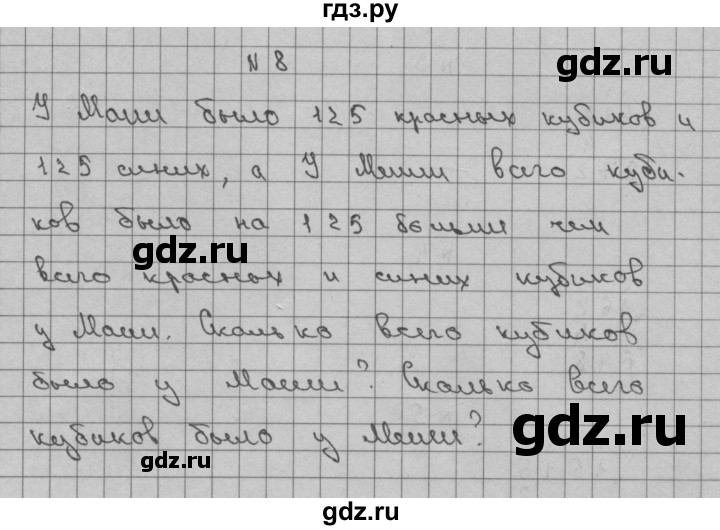 гдз.ру
gdz.ru
N 8
У Маши было 125 красных кубиков и
125 синих, а У Миши всего куби-
ков было на 125 больше чем
gdz.ru
всего красных и синих кубиков
у Маши. Сколько всего кубиков
было у Маши? Сколько всего
gdz.ru
кубиков было у Миши?
gdz.ru
gdz.ru